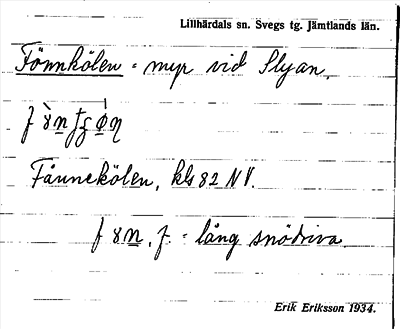 Lillhärdals sn. Svegs tg. Jämtlands län.
Fönnkölen = myr vid Slyan.
Fånnekölen, kbl 82 NV.
f. = lång snödriva
Erik Eriksson 1934.